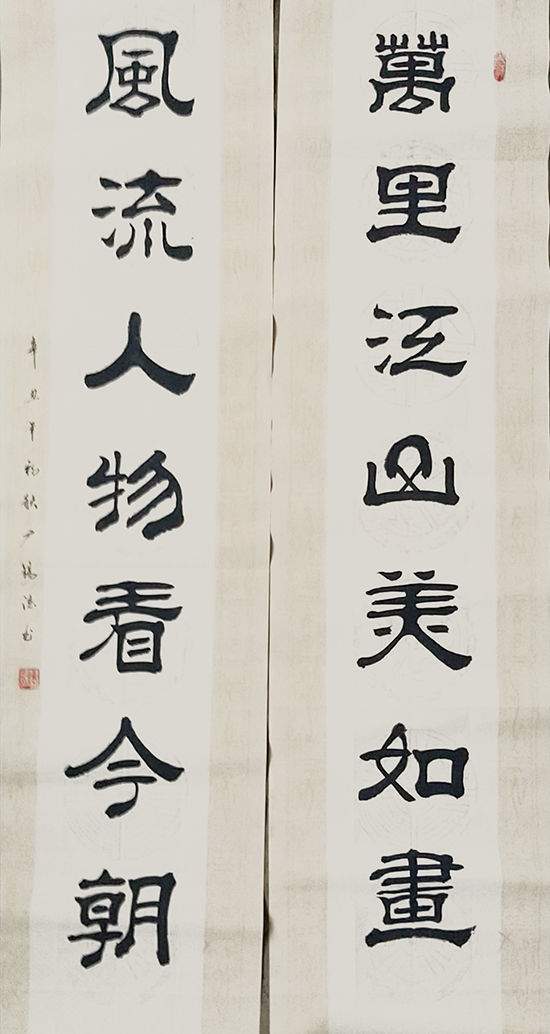 萬里江山美如畫
風流人物看今朝
辛丑年初秋尹楊法書